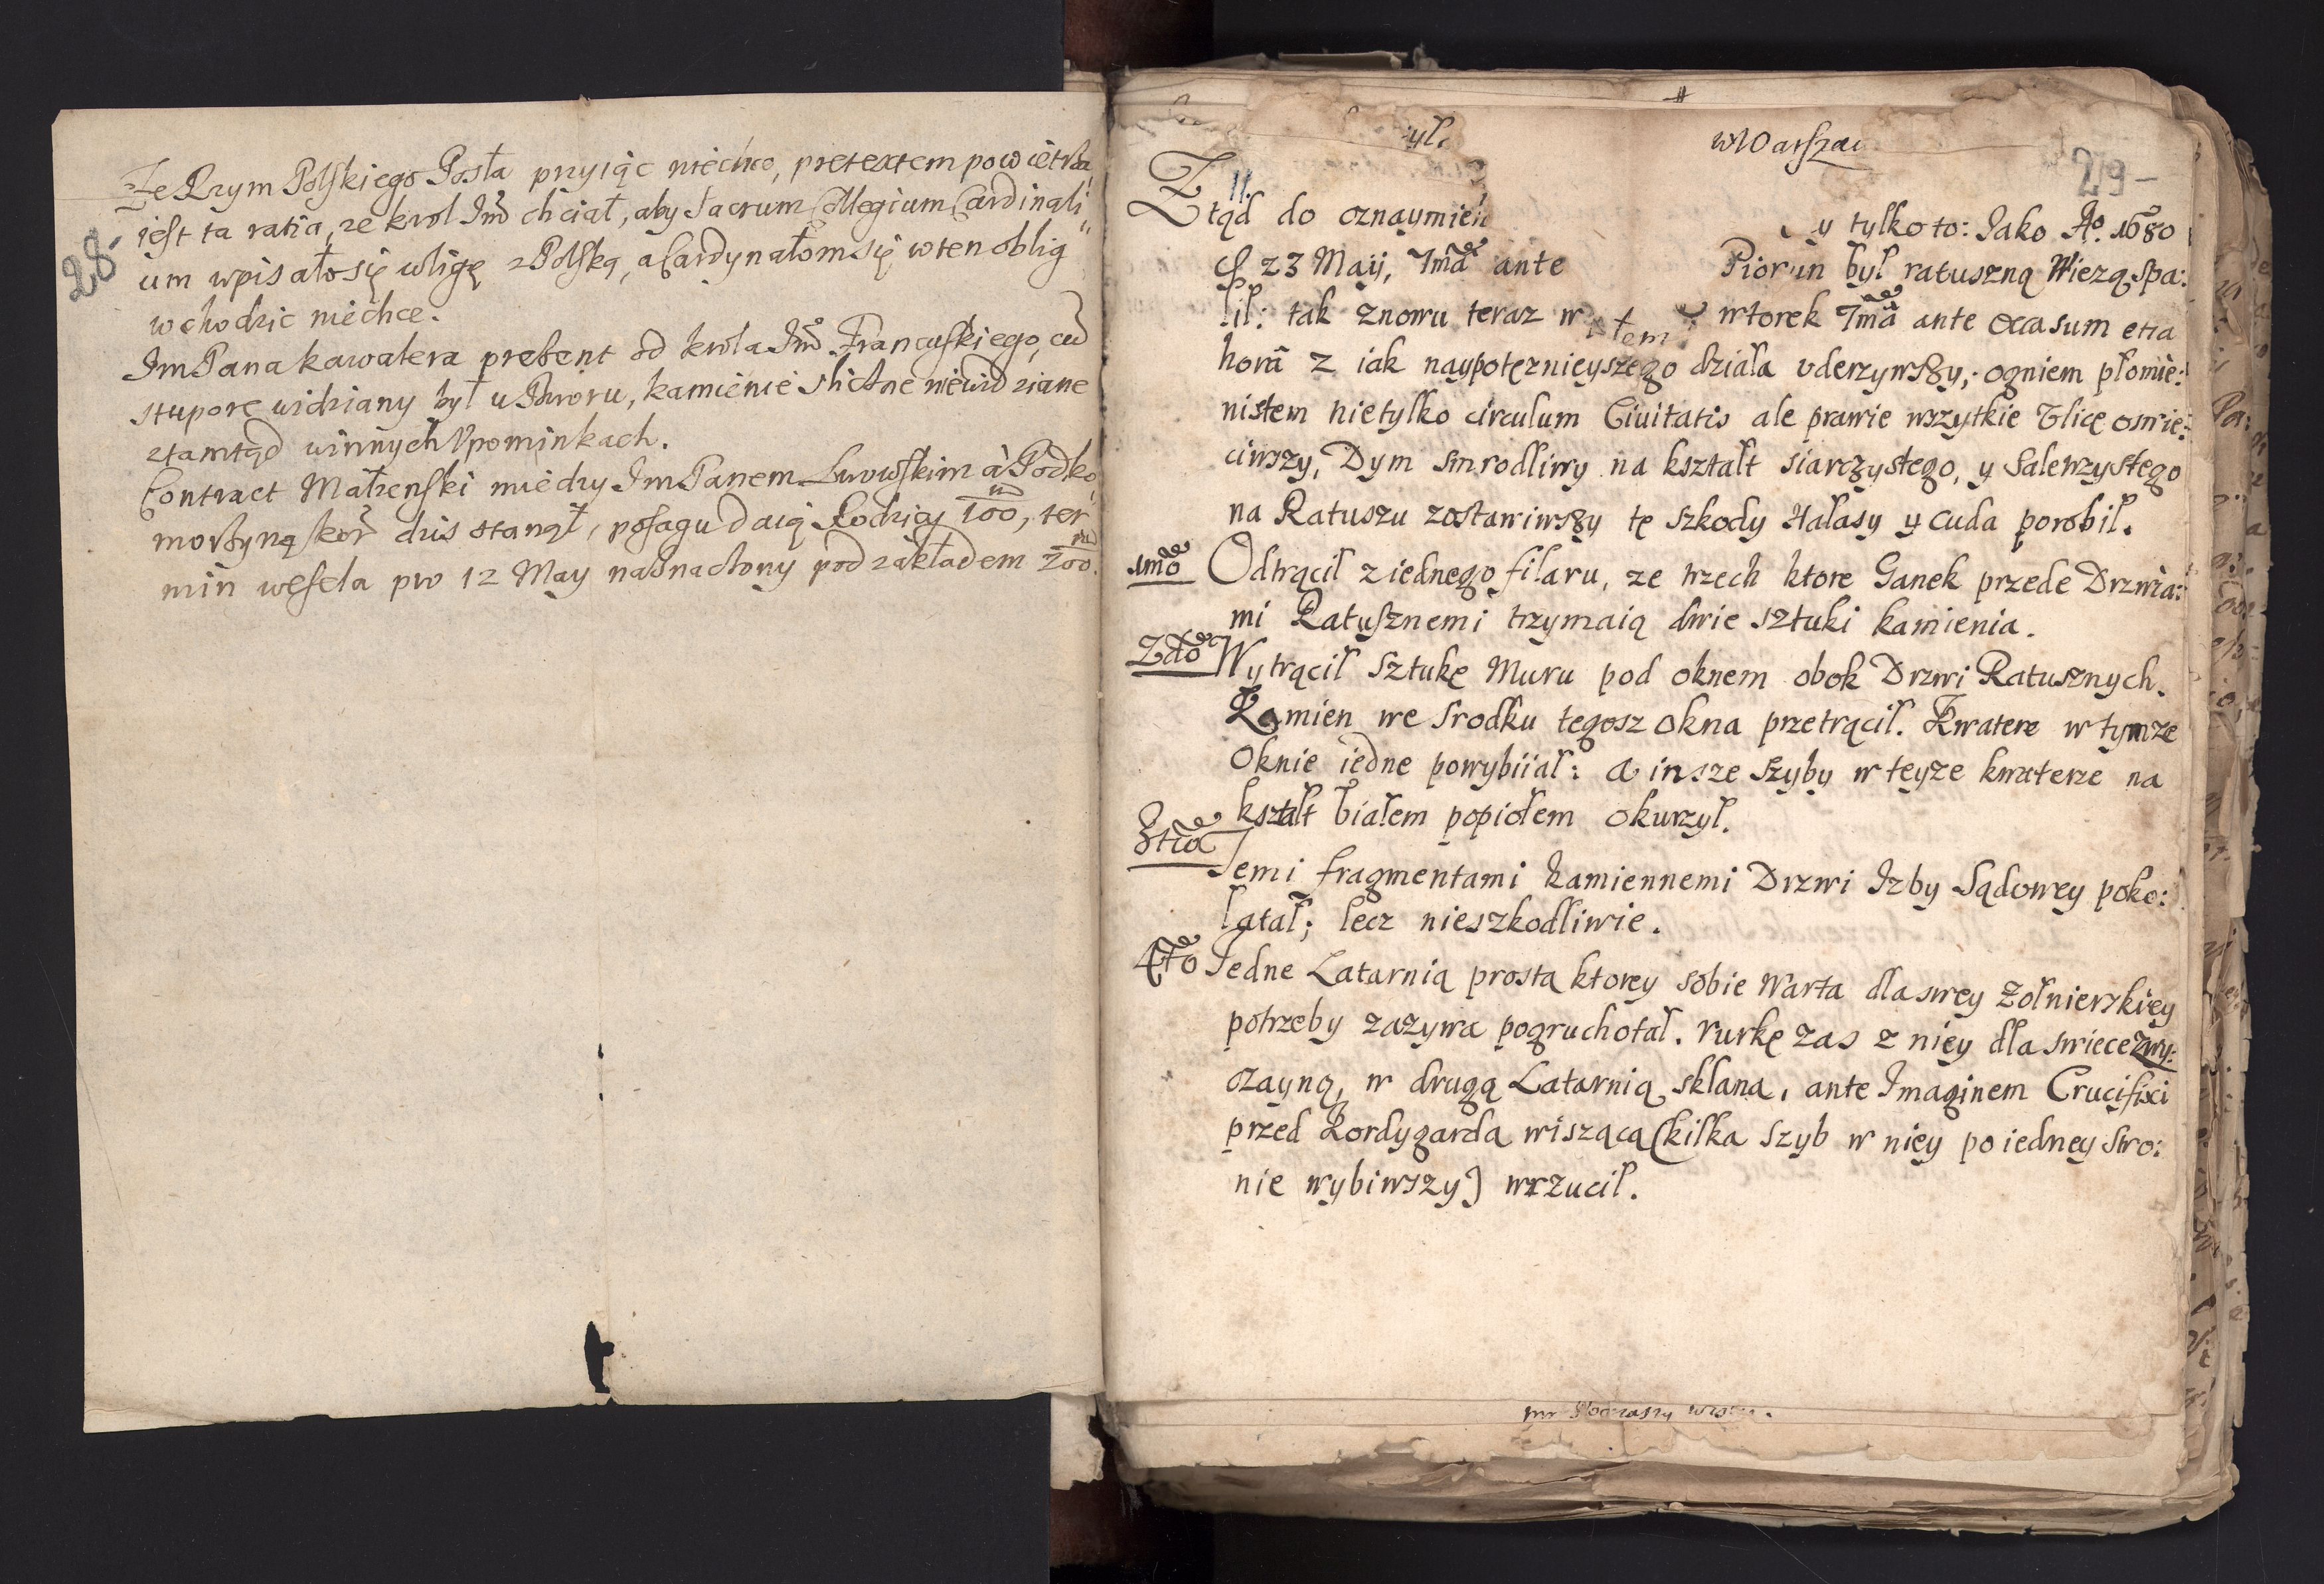 28
Ze Rzym Polskiego Posła przyiąc niechce, pretextem powietrza,
iest ta ratia, ze krol Jmć chciał, aby Sacrum Collegium Cardinali„
um wpisało się w ligę z Polską, a Cardynałom się w ten oblig
wchodzic niechce.
Jm Pana kawalera present od krola Jmć Francuskiego, cū
stupore widziany był u Dworu, kamienie sliczne niewidziane
ztamtąd w innych Upominkach.
Contract Małzenski miedzy Jm Panem Lwowskim à Podko„
morzyną kor dzis stanął, posagu daią Rodzicy 100, ter„
min wesela pro 12 May naznaczony pod zakładem 200.
w Warszaw
29
Ztąd do oznaymien y tylko to: Jako Ao. 1680
23 Maij, 7ma ante Piorun był ratuszną Wiezą spa:
lil: tak znowu teraz w wtorek 7ma ante Occasum etia
hora z iak naypotęznieyszego działa uderzywszy, ogniem płomie:
nistem nietylko circulum Civitatis ale prawie wszytkie Ulicę oswie:
ciwszy, Dym smrodliwy na kształt siarczystego, y Saletrzystego
na Ratuszu zostawiwszy tę szkody Hałasy y Cuda porobil.
1mo Odtrącil z iednego filaru, ze trzech ktore Ganek przede Drzwia:
mi Ratusznemi trzymaią dwie sztuki kamienia.
2do Wytrącil sztukę Muru pod oknem obok Drzwi Ratusznych.
Kamien we srodku tegosz Okna przetrącil. Kwatere w tymze
Oknie iedne powybiiał: a insze szyby w teyze kwaterze na
kształt białem popiołem okurzył.
3tio Temi fragmentami kamiennemi Drzwi Izby Sądowey poko:
latał; lecz nieszkodliwie.
4to Jedne Latarnią prostą ktorey sobie Warta dla swey zołnierskiey
potrzeby zazywa pogruchotał. rurkę zas z niey dla swiece zwy:
czayną, w drugą Latarnią sklaną, ante Imaginem Crucifixi
przed Kordygardą wiszącą (kilka szyb w niey po iedney stro:
nie wybiwszy) wrzucił.